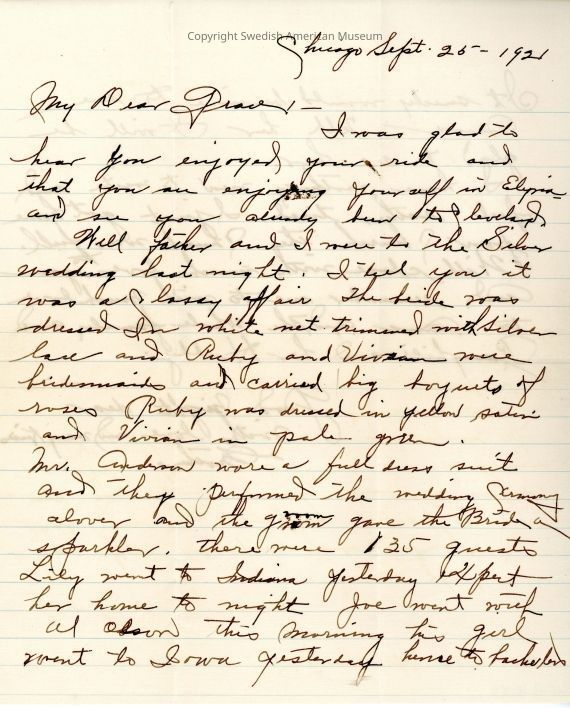 Copyright Swedish American Museum
Chicago Sept. 25 - 1921
My Dear Grace: -
I was glad to
hear you enjoyed your ride and
that you are enjoying yourself in Elyria
and see you already been to Cleveland,
Well father and I were to the Silver
wedding last night. I tell you it
was a Classy affair The bride was
dressed In white net trimmed with Silver
lace and Ruby and Vivian were
bridesmaids and carried big boquets of
roses Ruby was dressed in yellow satin
and Vivian in pale green.
Mr. Anderson wore a full dress suit
and they performed the wedding
alover and the groom gave the Bride a
sparkler. there were 135 guests
Lily went to Indiana yesterday expect
her home to night Joe went with
Al Olson this morning his girl
went to Iowa yesterday hence to bachelors